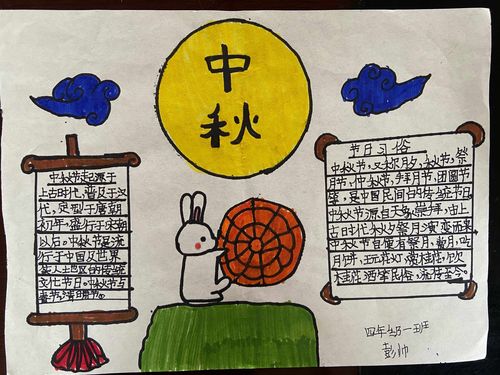 中
秋
中秋节起源于
上古时代，普及于汉
代，定型于唐朝
初年，盛行于宋朝
以后。中秋节是流
行于中国及世界
华人士巴区的传统
文化节日。中秋节与
春节、清明节。
节日习俗
中秋节，又称月夕，秋节，祭
月节，仲秋节，拜月节，团圆节
等，是中国民间的传统节日
中秋节源自天象崇拜，由上
古时代秋夕祭月演变而来
中秋节自便有祭月，赏月，吃
月饼，玩花灯，赏桂花，饮
桂花酒等民俗，流传至今。
四年级一班
彭帅